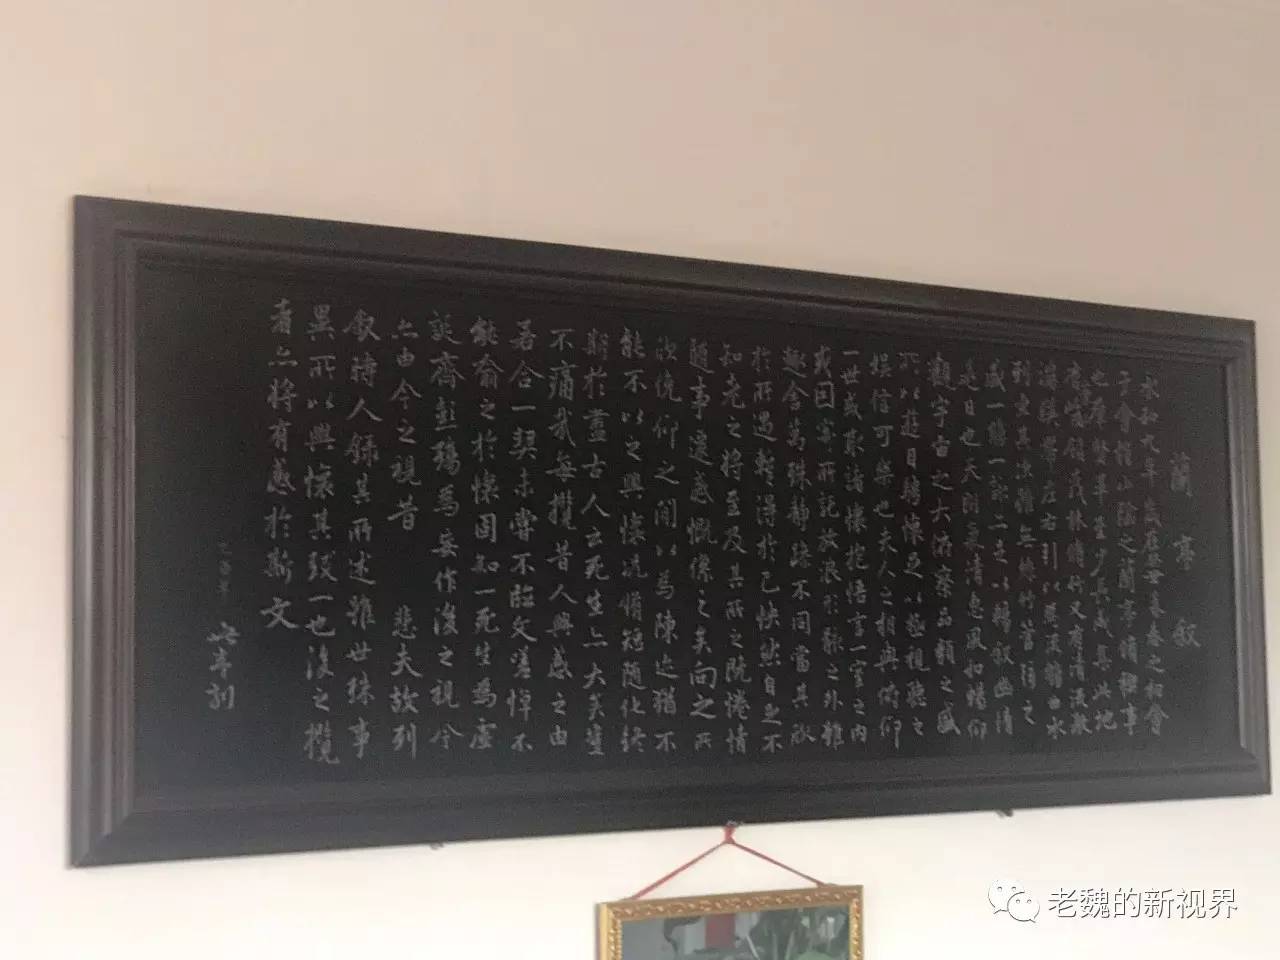 蘭亭敘
永和九年歲在癸丑暮春之初會
于會稽山陰之蘭亭脩禊事
也群賢畢至少長咸集此地
有崇山峻領茂林脩竹又有清流激
湍暎帶左右引以為流觴曲水
列坐其次雖無絲竹管弦之
盛一觴一詠亦足以暢敘幽情
是日也天朗氣清惠風和暢仰
觀宇宙之大俯察品類之盛
所以遊目騁懷足以極視聽之
娛信可樂也夫人之相與俯仰
一世或取諸懷抱悟言一室之內
或因寄所託放浪形骸之外雖
趣舍萬殊靜躁不同當其欣
於所遇暫得於己怏然自足不
知老之將至及其所之既惓情
隨事遷感慨係之矣向之所
欣俛仰之閒以為陳迹猶不
能不以之興懷況脩短隨化終
期於盡古人云死生亦大矣豈
不痛哉每攬昔人興感之由
若合一契未嘗不臨文嗟悼不
能喻之於懷固知一死生為虛
誕齊彭殤為妄作後之視今
亦由今之視昔 悲夫故列
敘時人錄其所述雖世殊事
異所以興懷其致一也後之攬
者亦將有感於斯文
老魏的新视界